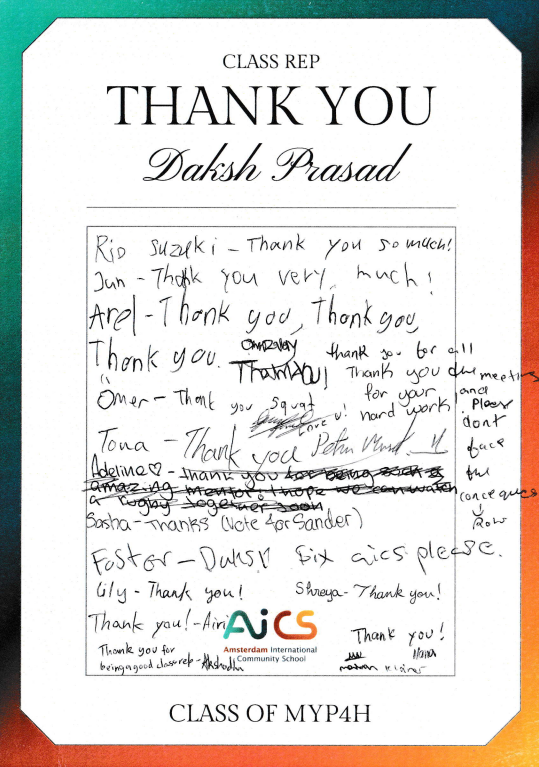 CLASS REP
THANK YOU
Daksh Prasad
Rio Suzuki - Thank you so much!
Jun - Thank you very, much!
Arel - Thank you, Thank you,
Thank you.
Thank you!
thank you for all
the meetings
and
Please
dont
face
the
Thank you
for your
hard work!
Ömer - Thank you squat
Love u!
Toma - Thank you
Adeline♡ - thank you for being such a
amazing mentor! I hope we can watch
a rugby together soon
Sasha - Thanks (Vote for Sander)
Foster - Daksh fix aics please.
Lily - Thank you!
Shreya - Thank you!
Thank you! - Airi
AiCS
Amsterdam International
Community School
Thank you for
being a good class rep -
Thank you!
CLASS OF MYP4H